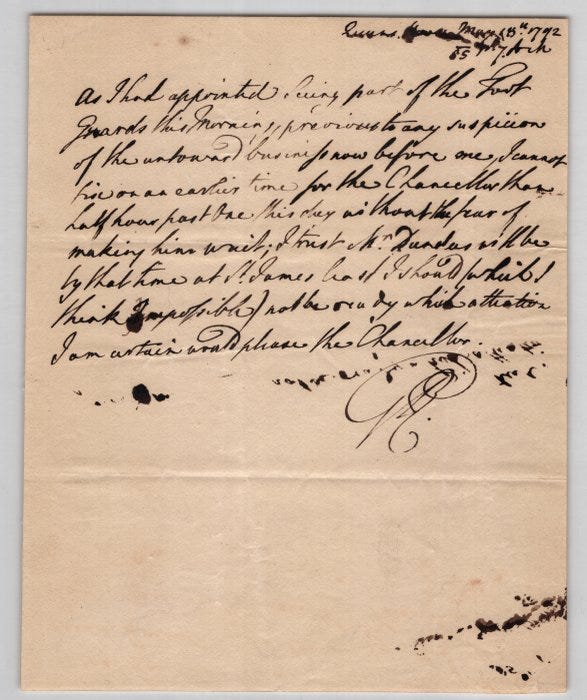 Queens House May 18th 1792
55 pt 7 A.M.
As I had appointed seeing part of the Foot
Guards this Morning, previous to any suspicion
of the untoward business now before me, I cannot
fix on an earlier time for the Chancellor than
half hour past One this day without the fear of
making him wait; I trust Mr. Dundas will be
by that time at St. James least I should (which I
think impossible) not be ready which attention
I am certain would please the Chancellor.
GR.